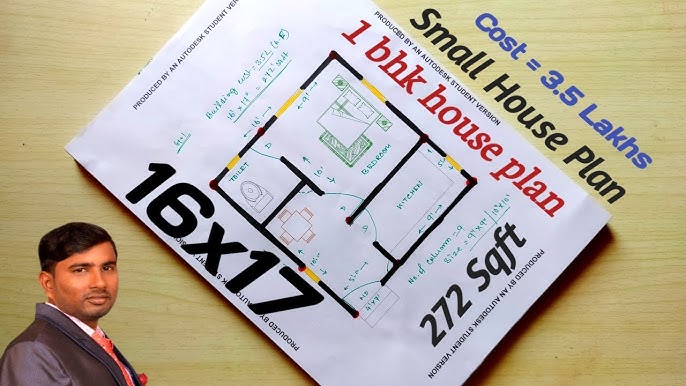 Cost = 3.5 Lakhs
Small House Plan
1 bhk house plan
16x17
272 Sqft
PRODUCED BY AN AUTODESK STUDENT VERSION
PRODUCED BY AN AUTODESK STUDENT VERSION
PRODUCED BY AN AUTODESK STUDENT VERSION
PRODUCED BY AN AUTODESK STUDENT VERSION
16'x17' = 272 sqft
TOILET
BEDROOM
KITCHEN
D
D
9'
10'
9'
No. of column = 9
Size = 9"x9"